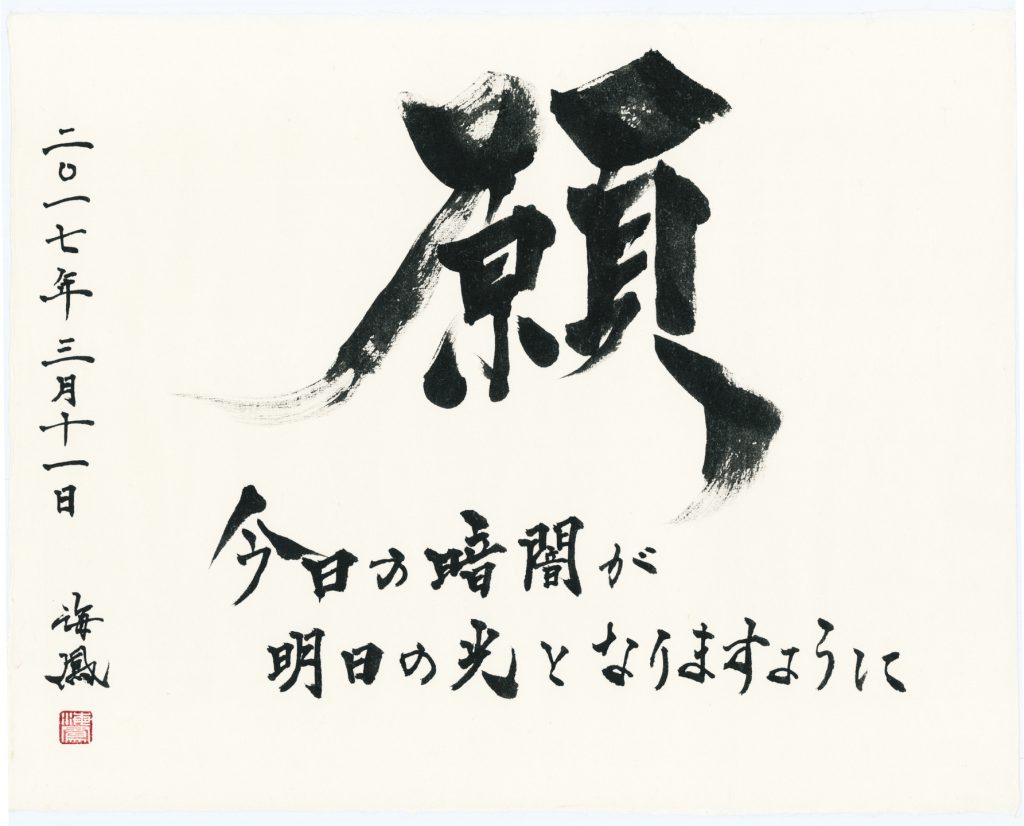 願
今日の暗闇が
明日の光となりますように
二〇一七年 三月十一日
海鳳